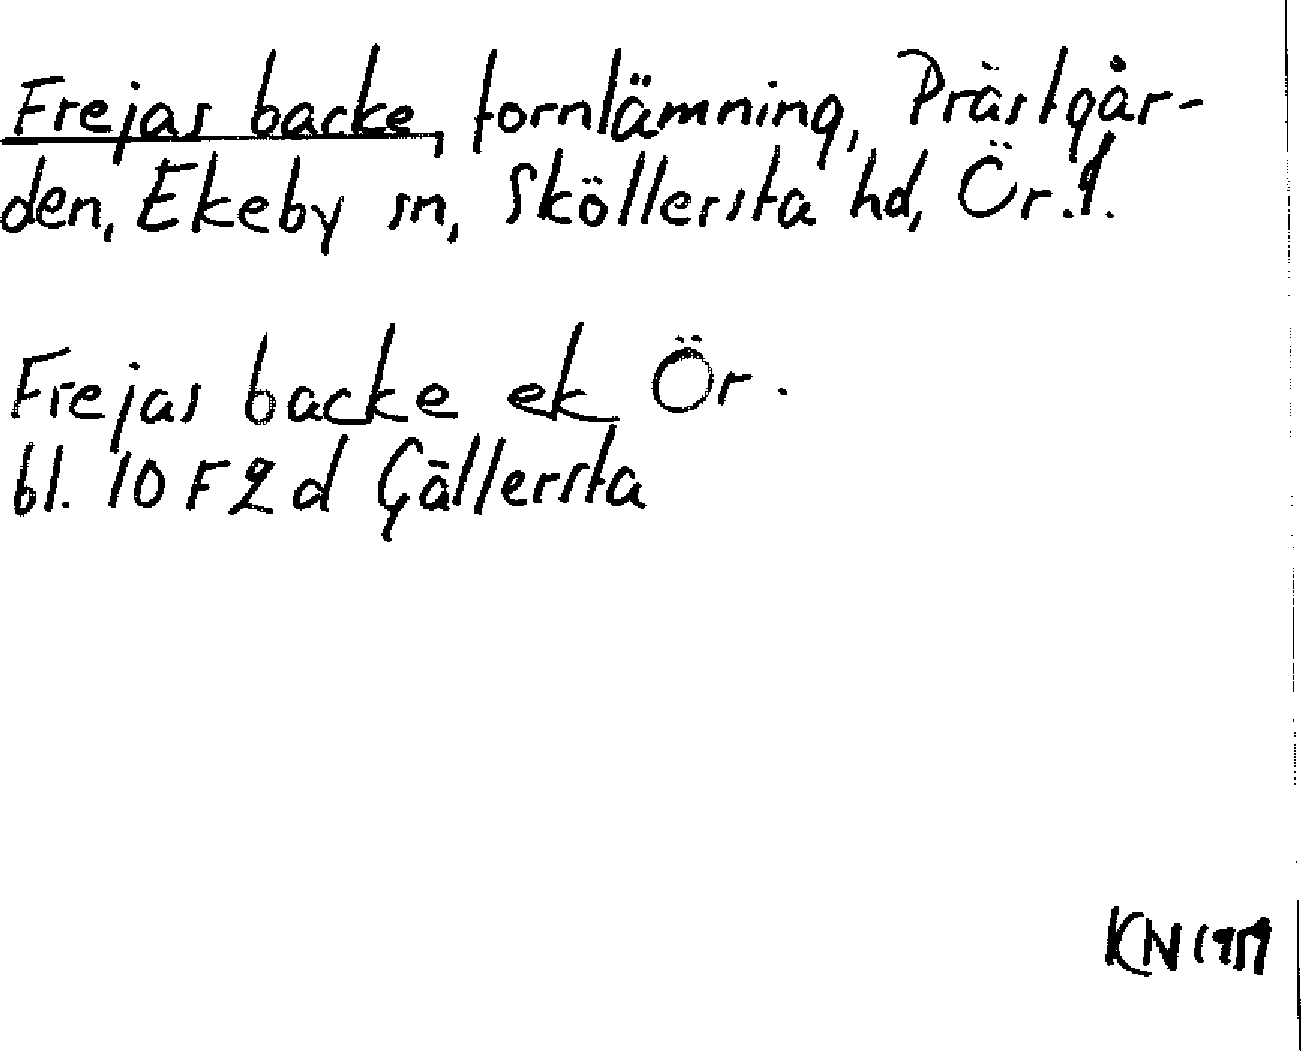 Frejas backe, fornlämning, Prästgår-
den, Ekeby sn, Sköllersta hd, Ör.l.
Frejas backe ek Ör.
bl. 10 F 2 d Gällersta
KN